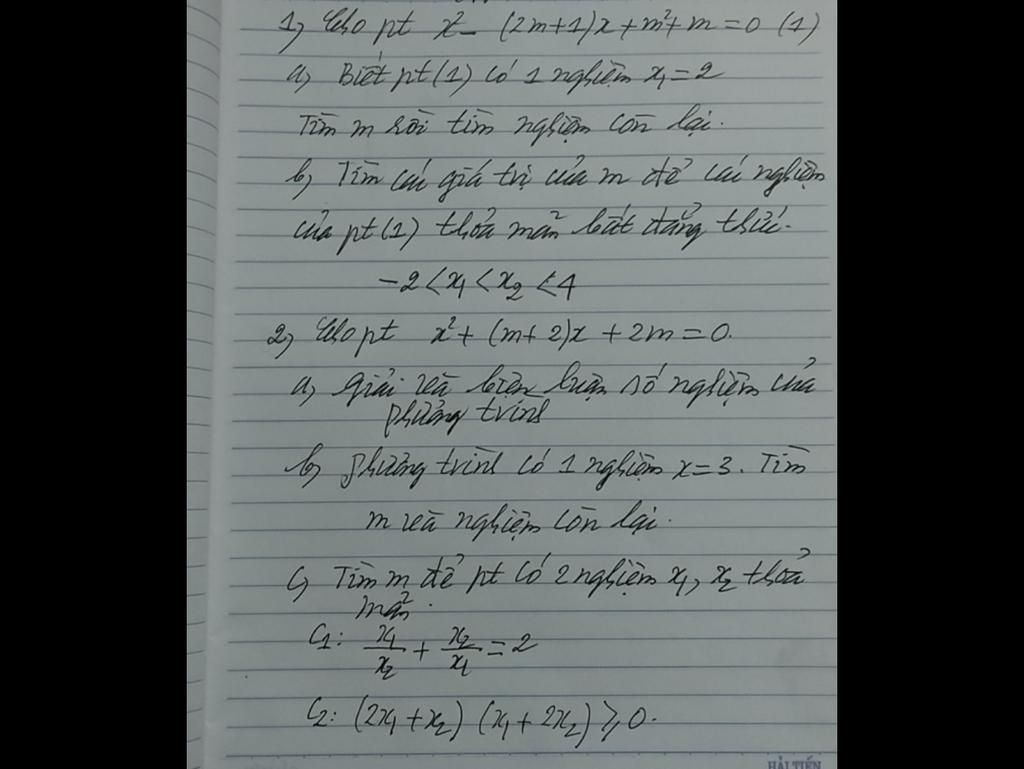 1, Cho pt x² - (2m+1)x + m² + m = 0 (1)
a, Biết pt (1) có 1 nghiệm x₁ = 2
Tìm m rồi tìm nghiệm còn lại.
b, Tìm các giá trị của m để các nghiệm
của pt (1) thỏa mãn bất đẳng thức.
-2 < x₁ < x₂ < 4
2, Cho pt x² + (m+2)x + 2m = 0.
a, Giải và biện luận số nghiệm của
phương trình
b, phương trình có 1 nghiệm x = 3. Tìm
m và nghiệm còn lại.
c, Tìm m để pt có 2 nghiệm x₁, x₂ thỏa
mãn.
C₁: x₁/x₂ + x₂/x₁ = 2
C₂: (2x₁ + x₂) (x₁ + 2x₂) ⩾ 0.
HẢI TIẾN